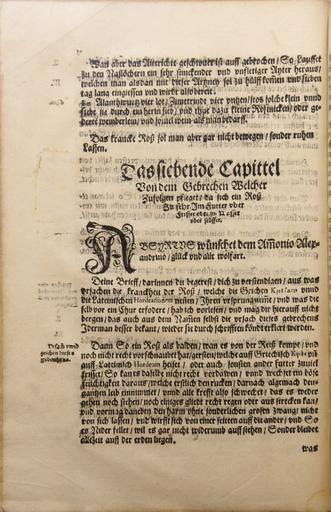 Wan aber das Aiterichte geschwulst ist auff gebrochen / So Laufft
zu den Naßlöchern ein sehr stinckender und unfletiger Ayter heraus/
welchen man alsdan mit dieser Artzney sol zu hülff komen und sieben
tag lang eingiessen und wirdt also bereit.
vier lot /
siebt sie durch ein und thut dazu kleine Rosinicken / oder ge-
derete weinberlein / und souiel wein als man bedarff.
Das krancke Roß sol man aber gar nicht bewegen / sonder ruhen
Lassen.
Das siebende Capittel
Von dem Gebrechen Welcher
Zufolgen pflegett da sich ein Roß
Zu sehr Im Futter oder
Fresser
oder
ABSYRTUS wünschet dem Amonio Alex-
andrino / glück und alle wolfart.
Deine Brieff / darinnen du begerest / dich zu verstendigen / aus was
ursachen die kranckheit der Roß / welche die Griechen und
die Lateinischen Hordeationem nennen / Ihren ursprung nimt / und was die
selb vor ein Chur erfodere / hab ich verlesen / und mag dir hierauff nicht
bergen / das auch aus dem Namen selbst die ursach dieses gebrechens
Iderman besser bekant / wieder sie durch schrifften köndt erklert werden.
Dann So ein Roß als balden / wan es von der Reiß kompt / und
noch nicht recht verschnaubt hat / gersten / welche auff Griechisch
auff Lateinisch Hordeum heist / oder auch sonsten ander futter zuuiel
frisset / So kan es dasselb nicht recht verdawen / und wechset ein böse
feuchtigkeit daraus / welche erstlich den rucken / darnach algemach den
gantzen leib einnimmet / unnd alle krefft also schwechet / das es weder
gehen noch stehen / noch einiges gliedt recht regen oder aus strecken kan /
und vermag daneben den harm ohne sonderlichen grossen zwang nicht
von sich lassen / und wirfft sich von einer seitten auff die ander / und So
es Nider fellet / wil es gar nicht widerumb auff stehen / Sonder bleibet
allezeit auff der erden liegen.
was